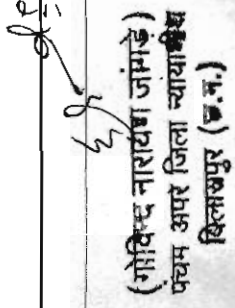 (गोविन्द नारायण जांगड़े)
पंचम अपर जिला न्यायाधीश
बिलासपुर (छ.ग.)